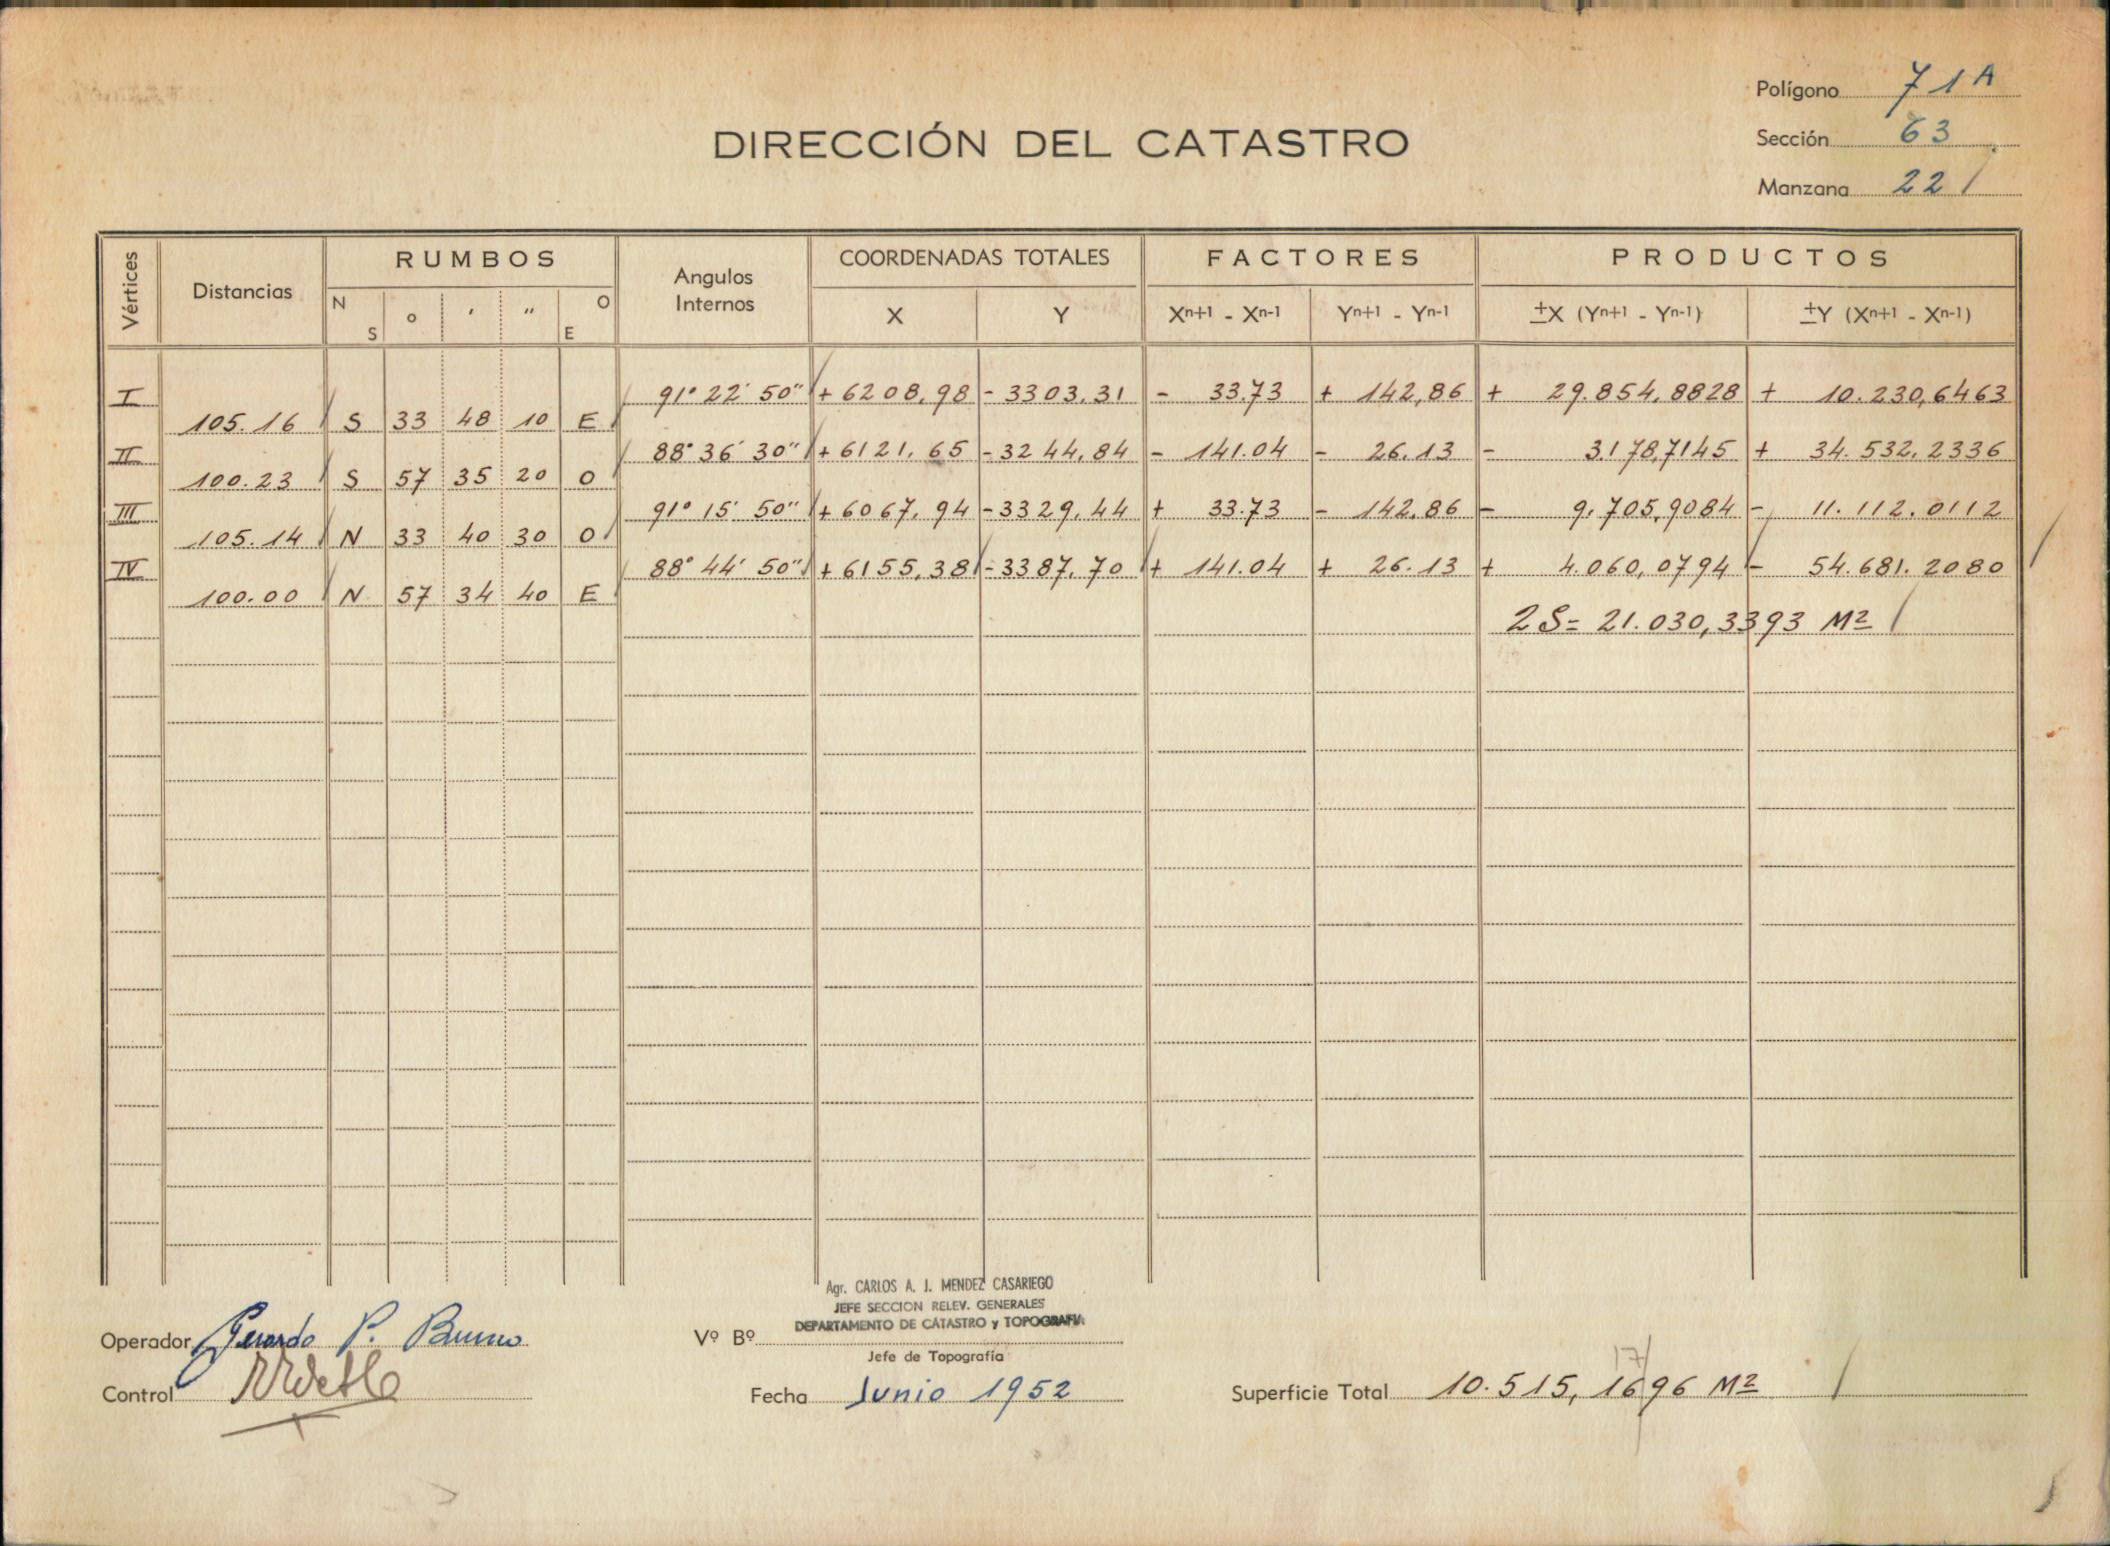 Polígono 71A
DIRECCIÓN DEL CATASTRO
Sección 63
Manzana 22
Vértices Distancias RUMBOS Angulos Internos COORDENADAS TOTALES FACTORES PRODUCTOS
N S o ′ ″ O E X Y Xn+1 - Xn-1 Yn+1 - Yn-1 ±X (Yn+1 - Yn-1) ±Y (Xn+1 - Xn-1)
I 91° 22′ 50″ + 6208,98 - 3303.31 - 33.73 + 142,86 + 29.854,8828 + 10.230,6463
105.16 S 33 48 10 E
II 88° 36′ 30″ + 6121,65 - 3244,84 - 141.04 - 26.13 - 3.178,7145 + 34.532,2336
100.23 S 57 35 20 O
III 91° 15′ 50″ + 6067,94 - 3329,44 + 33.73 - 142,86 - 9.705,9084 - 11.112.0112
105.14 N 33 40 30 O
IV 88° 44′ 50″ + 6155,38 - 3387,70 + 141.04 + 26.13 + 4.060,0794 - 54.681.2080
100.00 N 57 34 40 E
2S= 21.030,3393 M2
Agr. CARLOS A. J. MENDEZ CASARIEGO
JEFE SECCION RELEV. GENERALES
DEPARTAMENTO DE CATASTRO y TOPOGRAFIA
Operador Gerardo P. Bruno Vº Bº
Jefe de Topografía
17
Control Fecha Junio 1952 Superficie Total 10.515,1696 M2